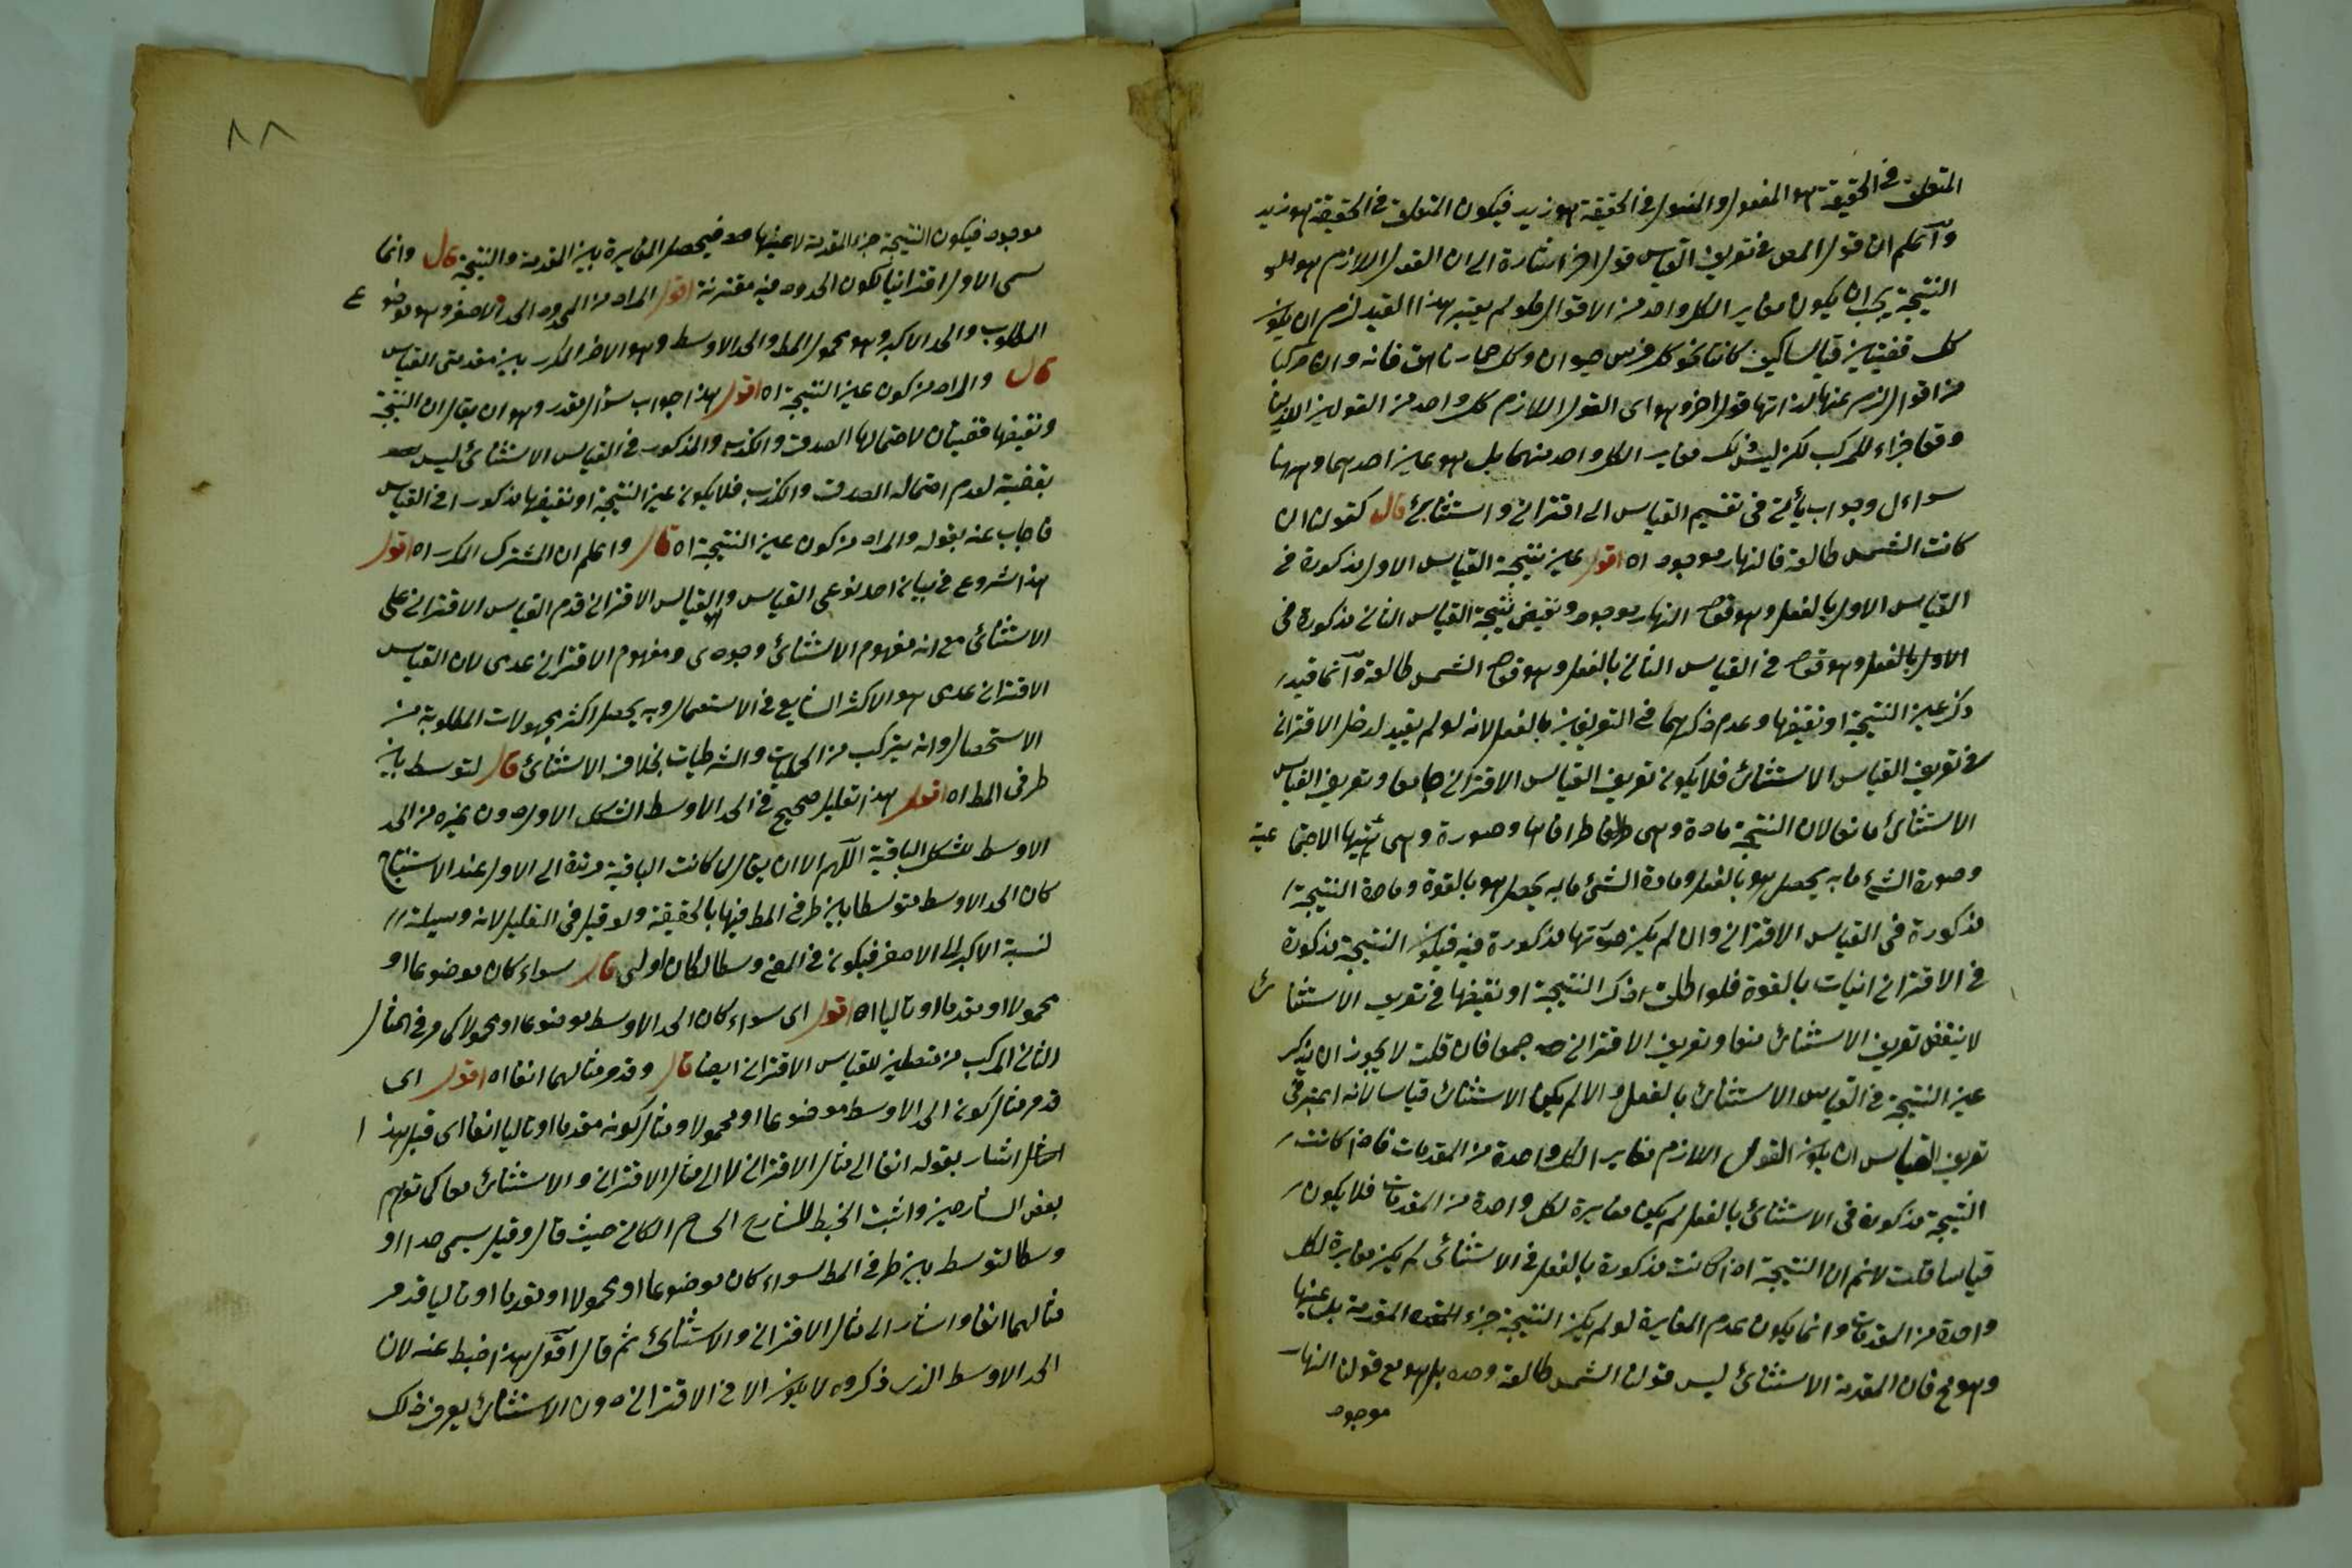 المتعلق في الحقيقة هو المفعول والمفعول في الحقيقة هو زيد فيكون المتعلق في الحقيقة هو زيد
واعلم ان قول المص في تعريف القياس قول اخر اشارة الى ان القول اللازم هو
النتيجة يجب ان يكون مغايرا لكل واحد من الاقوال فلو لم يعتبر هذا القيد لزم ان يكون
كل قضيتين قياسا كيف كانتا نحو كل فرس حيوان وكل حمار ناهق فانه وان مركبا
من اقوال لزم عنها لذاتها قول اخر وهو اى القول اللازم كل واحد من القولين اللذين
وقعا جزاء للمركب لكن ليس ذلك مغايرا لكل واحد منهما بل هو عين احدهما وههنا
سواءل وجواب يأتى في تقسيم القياس الى اقترانى واستثنائى قال كقولنا ان
كانت الشمس طالعة فالنهار موجود اه اقول عين نتيجة القياس الاول مذكورة في
القياس الاول بالفعل وهو قوله النهار موجود ونقيض نتيجة القياس الثانى مذكورة في
الاول بالفعل وهو قوله في القياس الثانى بالفعل وهو قوله الشمس طالعة وانما قيد
ذكر عين النتيجة او نقيضها وعدم ذكرهما في التعريفين بالفعل لانه لو لم يقيد لدخل الاقترانى
في تعريف القياس الاستثنائى فلا يكون تعريف القياس الاقترانى جامعا وتعريف القياس
الاستثنائى مانعا لان النتيجة مادة وهى طرفاها وصورة وهى هيئتها الاجتما عية
وصورة الشئ ما به يحصل هو بالفعل ومادة الشئ ما به يحصل هو بالقوة ومادة النتيجة
مذكورة في القياس الاقترانى وان لم يكن صورتها مذكورة فيه فيكون النتيجة مذكورة
في الاقترانيات بالقوة فلو اطلق ذكر النتيجة او نقيضها في تعريف الاستثنا ئ
لانتقض تعريف الاستثنائى منعا وتعريف الاقترانى جمعا فان قلت لا يجوز ان يذكر
عين النتيجة في القياس الاستثنائى بالفعل والا لم يكن الاستثنائى قياسا لانه اعتبر في
تعريف القياس ان يكون القول اللازم مغايرا لكل واحدة من المقدمات فاذا كانت
النتيجة مذكورة في الاستثنائى بالفعل لم يكن مغايرة لكل واحدة من المقدمات فلا يكون
قياسا قلت لانم ان النتيجة اذا كانت مذكورة بالفعل في الاستثنائى لم يكن مغايرة لكل
واحدة من المقدمات وانما يكون عدم المغايرة لو لم يكن النتيجة جزء المقدمة بل عينها
وهو مم فان المقدمة الاستثنائى ليس قولنا الشمس طالعة وحده بل هو مع قولنا النهار
موجود
٨٨
موجود فيكون النتيجة جزء المقدمة لا عينها فيحصل المغايرة بين المقدمة والنتيجة قال وانما
سمى الاول اقترانيا لكون الحدود فيه مقترنة اقول المراد من الحدود الحد الاصغر وهو موضو ع
المطلوب والحد الاكبر وهو محمول المط والحد الاوسط وهو الامر المكرر بين مقدمتى القياس
قال والمراد من كون عين النتيجة اه اقول هذا جواب سؤال مقدر وهو ان يقال ان النتيجة
ونقيضها قضيتان لاحتمالها الصدق والكذب والمذكور في القياس الاستثنائى ليس
بقضية لعدم احتماله الصدق والكذب فلا يكون عين النتيجة او نقيضها مذكورا في القياس
فاجاب عنه بقوله والمراد من كون عين النتيجة اه قال واعلم ان المشترك المكرر اه اقول
هذا شروع في بيان احد نوعى القياس والقياس الاقترانى قدم القياس الاقترانى على
الاستثنائى مع انه مفهوم الاستثنائى وجودى ومفهوم الاقترانى عدمى لان القياس
الاقترانى عدمى هو الاكثر الشايع في الاستعمال وبه يحصل اكثر مجهولات المطلوبة من
الاستحصال وانه يتركب من الحمليات والشرطيات بخلاف الاستثنائى قال لتوسط بين
طرفى المط اه اقول هذا تعليل صحيح في الحد الاوسط الشكل الاول دون غيره من الحد
الاوسط للشكل الباقية اللهم الا ان يقال لما كانت الباقية مرتدة الى الاول عند الاستنتاج
كان الحد الاوسط متوسطا بين طرفى المط فيها بالحقيقة ولو قيل في التعليل لانه وسيلة
لنسبة الاكبر الى الاصغر فيكون في المعنى وسطا لكان اولى قال سواء كان موضوعا او
محمولا او مقدما او تاليا اه اقول اى سواء كان الحد الاوسط موضوعا او محمولا كما مر في المثال
الثانى المركب من متصلين للقياس الاقترانى ايضا قال وقد مر مثالهما انفا اه اقول اى
قد مر مثال كون الحد الاوسط موضوعا او محمولا ومثال كونه مقدما او تاليا انفا اى قبل هذ ا
اشار بقوله انفا الى مثال الاقترانى لا الى مثال الاقترانى والاستثنائى معا كما توهم
بعض الشارحين واثبت الخبط للشارح الحسام الكاتى حيث قال وقيل سمى حدا او
وسطا لتوسط بين طرفى المط سواء كان موضوعا او محمولا او مقدما او تاليا قد مر
مثالهما انفا واشار الى مثال الاقترانى والاستثنائى ثم قال اقول هذا خبط عنه لان
الحد الاوسط الذى ذكروه لا يكون الا في الاقترانى دون الاستثنائى يعرف ذلك